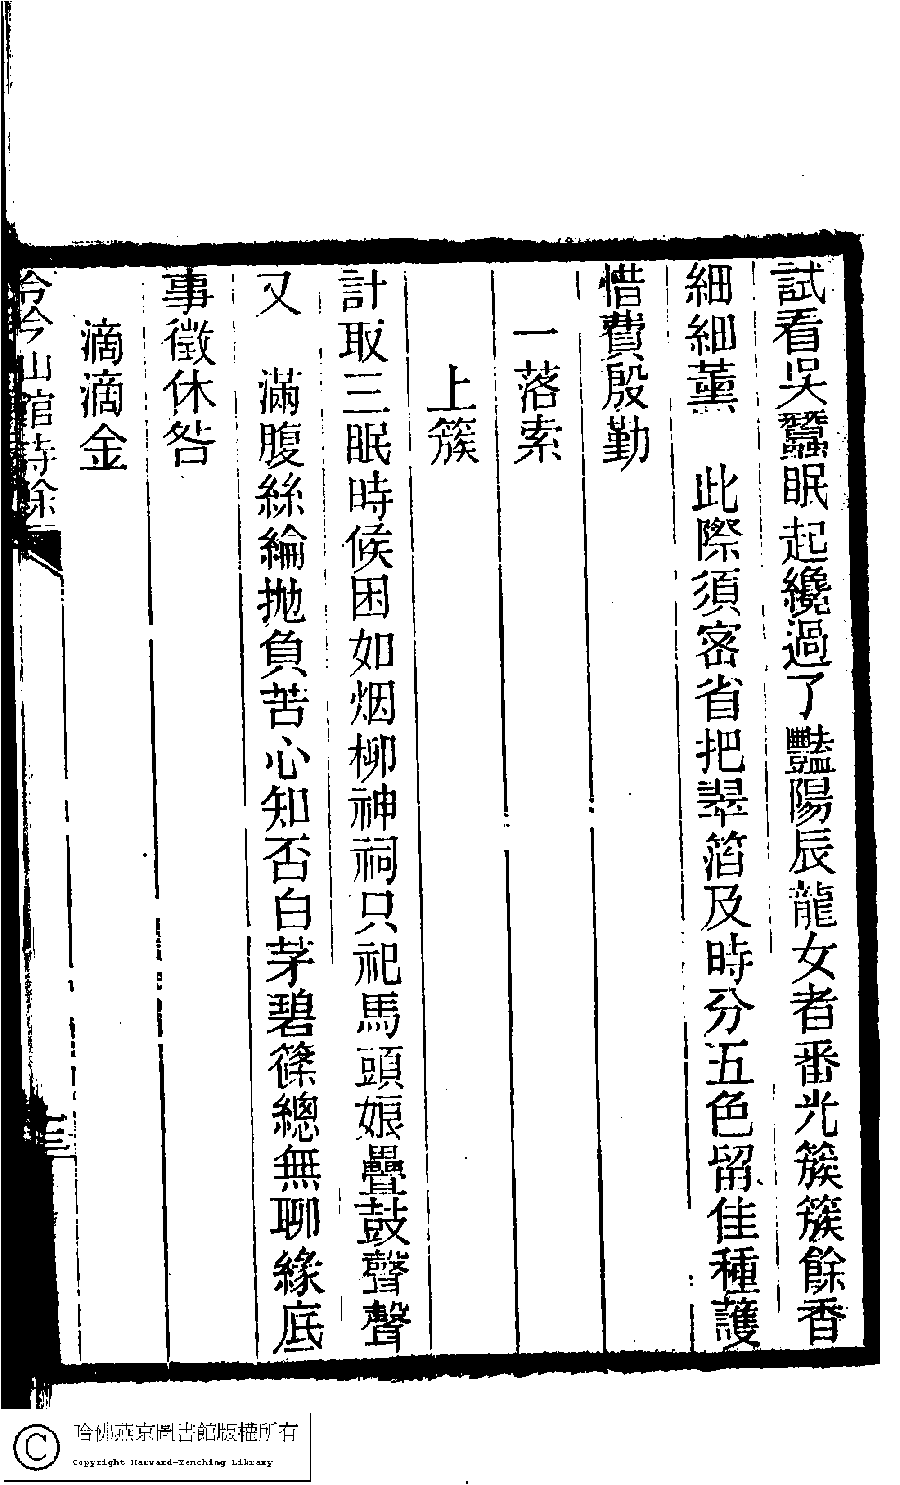 試看吳蠶眠起纔過了豔陽辰龍女者番光簇簇餘香
細細薰　此際須密省把翠箔及時分五色留佳種護
惜費殷勤
一落索
上簇
計取三眠時候困如烟柳神祠只祀馬頭娘疊鼓聲聲
又　滿腹絲綸拋負苦心知否白茅碧篠總無聊緣底
事徵休咎
滴滴金
冷吟山館詩餘
三
哈佛燕京圖書館版權所有
Copyright Harvard-Yenching Library